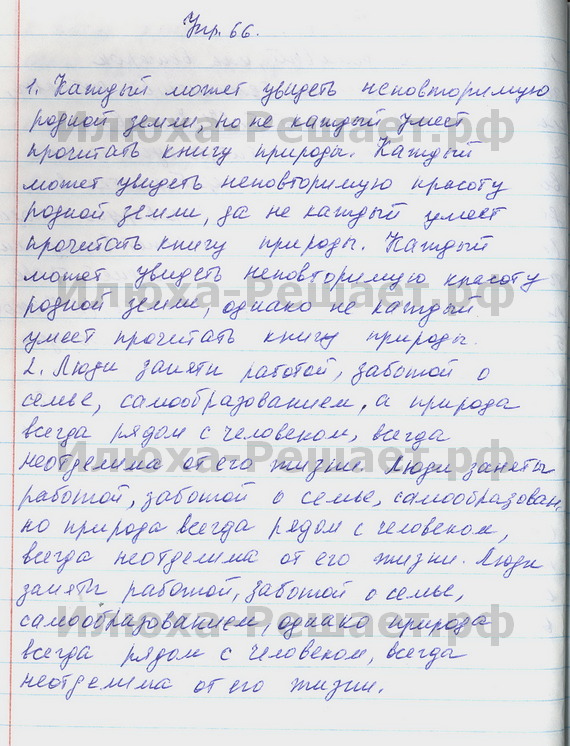 Упр. 66.
1. Каждый может увидеть неповторимую
родной земли, но не каждый умеет
прочитать книгу природы. Каждый
может увидеть неповторимую красоту
родной земли, да не каждый умеет
прочитать книгу природы. Каждый
может увидеть неповторимую красоту
родной земли, однако не каждый
умеет прочитать книгу природы.
2. Люди заняты работой, заботой о
семье, самообразованием, а природа
всегда рядом с человеком, всегда
неотделима от его жизни. Люди заняты
работой, заботой о семье, самообразован.
но природа всегда рядом с человеком,
всегда неотделима от его жизни. Люди
заняты работой, заботой о семье,
самообразованием, однако природа
всегда рядом с человеком, всегда
неотделима от его жизни.
Илюха-Решает.рф
Илюха-Решает.рф
Илюха-Решает.рф
Илюха-Решает.рф